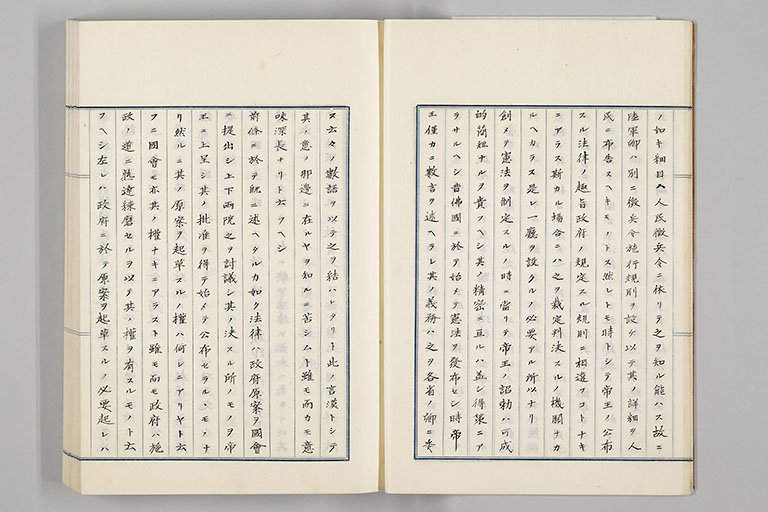 ノ如キ細目ハ人民徴兵令ニ依リテ之ヲ知ル能ハス故ニ
陸軍卿ハ別ニ徴兵令施行規則ヲ設ケ以テ其ノ詳細ヲ人
民ニ布告スヘキモノトス然レトモ時トシテ帝王ノ公布
スル法律ノ趣旨政府ノ規定スル規則ニ相違フコトナキ
ニアラス斯カル場合ニハ之ヲ裁定判決スル機關ナカ
ルヘカラス是レ一廳ヲ設クルノ必要アル所以ナリ
創メテ憲法ヲ制定スルノ時ニ當リテ帝王ノ詔勅ハ可成
的簡短ナルヲ貴フヘシ其ノ精密ニ亘ルハ蓋シ得策ニア
ラサルヘシ昔佛國ニ於テ始メテ憲法ヲ發布セシ時帝
王僅カニ數言ヲ述ヘラレ其ノ義務ハ之ヲ各省ノ卿ニ委
ス云々ノ數語ヲ以テ之ヲ結ハレタリト此ノ言漠トシテ
其ノ意ノ那邊ニ在ルヤヲ知ルニ苦シムト雖モ而カモ意
味深長ナリト云フヘシ
前條ニ於テ既ニ述ヘタルカ如ク法律ハ政府原案ヲ國會
ニ提出シ上下兩院之ヲ討議シ其ノ決スル所ノモノヲ帝
王ニ上呈シ其ノ批准ヲ得テ始メテ公布セラルヽモノナ
リ然ルニ其ノ原案ヲ起草スルノ權ハ何レニアリヤト云
フニ國會モ亦其ノ權ナキニアラスト雖モ而モ政府ハ施
政ノ道ニ熟達練磨セルヲ以テ其ノ權ヲ有スルモノト云
フヘシ左レハ政府ニ於テ原案ヲ起草スルノ必要起レハ